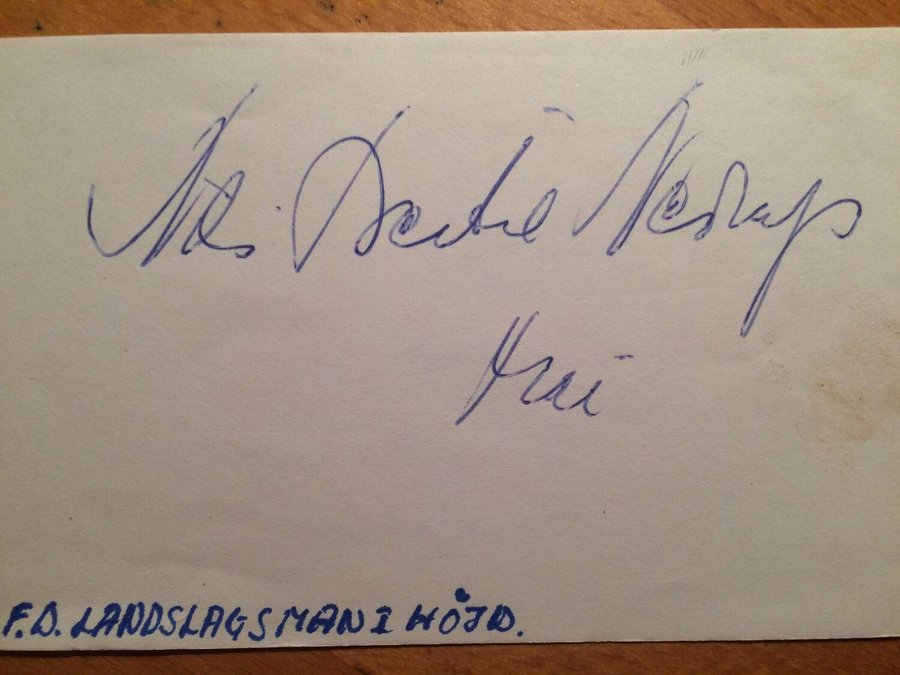 Nils Bertil Nevrup
F.D. LANDSLAGSMAN I HÖJD.